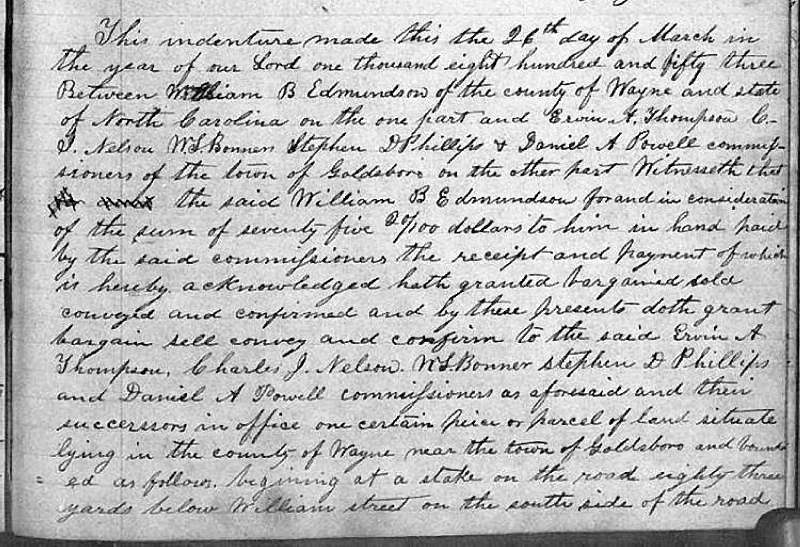 This indenture made this the 26th day of March in
the year of our Lord one thousand eight hundred and fifty three
Between William B Edmundson of the county of Wayne and state
of North Carolina on the one part and Ervin A. Thompson C.
J. Nelson W S Bonner Stephen D Phillips & Daniel A Powell commis-
sioners of the town of Goldsboro on the other part Witnesseth that
the said William B Edmundson for and in consideration
of the sum of seventy five 20/100 dollars to him in hand paid
by the said commissioners the receipt and payment of which
is hereby acknowledged hath granted bargained sold
conveyed and confirmed and by these presents doth grant
bargain sell convey and confirm to the said Ervin A
Thompson, Charles J. Nelson. W S Bonner stephen D Phillips
and Daniel A Powell commissioners as aforesaid and their
successors in office one certain peice or parcel of land situate
lying in the county of Wayne near the town of Goldsboro and bound
= ed as follows. begining at a stake on the road eighty three
yards below William street on the south side of the road